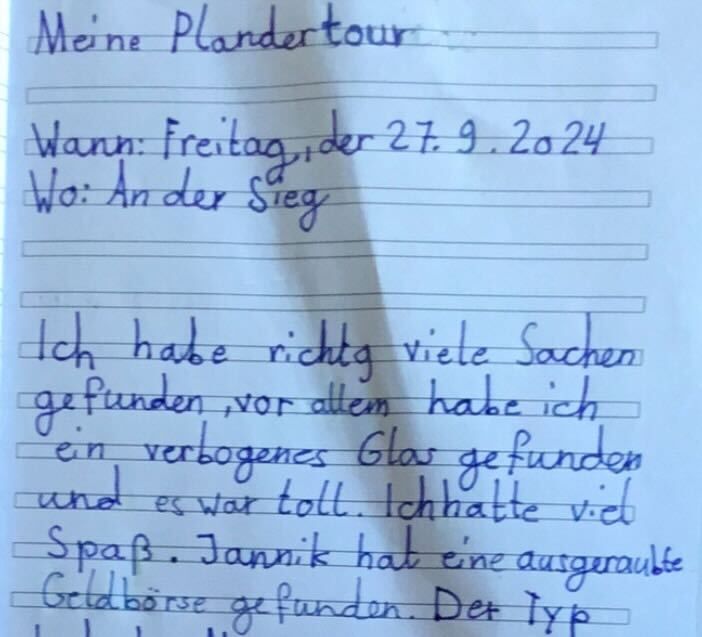 Meine Plandertour
Wann: Freitag, der 27.9.2024
Wo: An der Sieg
Ich habe richtg viele Sachen
gefunden, vor allem habe ich
ein verbogenes Glas gefunden
und es war toll. Ich hatte viel
Spaß. Jannik hat eine ausgeraubte
Geldbörse gefunden. Der Typ